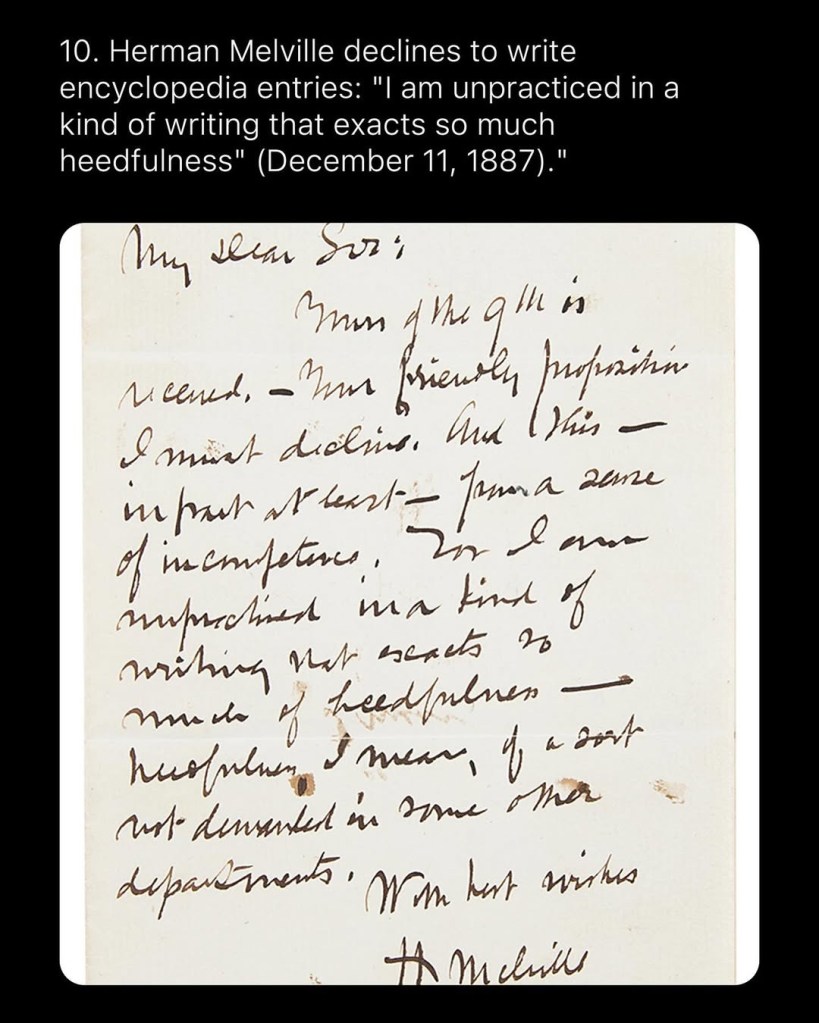 10. Herman Melville declines to write
encyclopedia entries: "I am unpracticed in a
kind of writing that exacts so much
heedfulness" (December 11, 1887)."
My Dear Sir:
Yours of the 9th is
received. — Your friendly proposition
I must decline. And this —
in part at least — from a sense
of incompetence. For I am
unpracticed in a kind of
writing that exacts so
much of heedfulness —
heedfulness, I mean, of a sort
not demanded in some other
departments.
With best wishes
H Melville